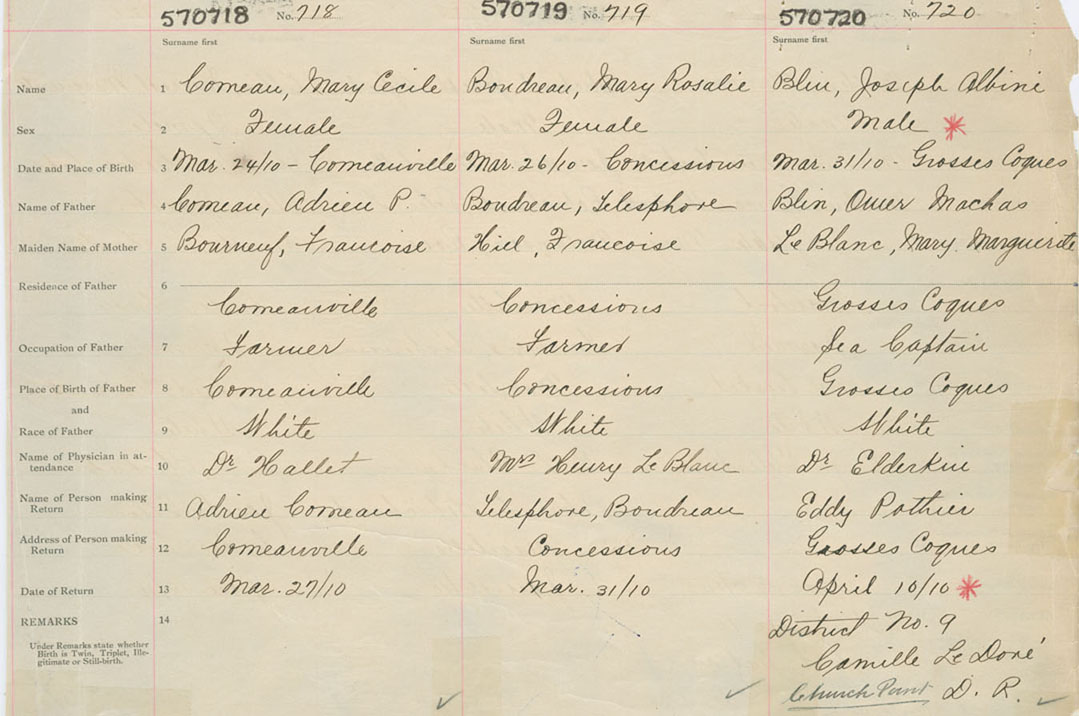 570718 No. 718 570719 No. 719 570720 No. 720
Surname first Surname first Surname first
Name 1 Comeau, Mary Cecile Boudreau, Mary Rosalie Blin, Joseph Albini
Sex 2 Female Female Male *
Date and Place of Birth 3 Mar. 24/10 - Comeauville Mar. 26/10 - Concessions Mar. 31/10 - Grosses Coques
Name of Father 4 Comeau, Adrien P. Boudreau, Telesphore Blin, Omer Machas
Maiden Name of Mother 5 Bourneuf, Francoise Hiel, Francoise Le Blanc, Mary Marguerite
Residence of Father 6
Comeauville Concessions Grosses Coques
Occupation of Father 7 Farmer Farmer Sea Captain
Place of Birth of Father 8 Comeauville Concessions Grosses Coques
and
Race of Father 9 White White White
Name of Physician in at-
tendance 10 Dr Hallet Mrs Henry Le Blanc Dr Elderkin
Name of Person making
Return 11 Adrien Comeau Telesphore, Boudreau Eddy Pothier
Address of Person making
Return 12 Comeauville Concessions Grosses Coques
Date of Return 13 Mar. 27/10 Mar. 31/10 April 10/10 *
REMARKS 14
District No. 9
Under Remarks state whether
Birth is Twin, Triplet, Ille-
gitimate or Still-birth.
Camille Le Doré
Church Point D. R.